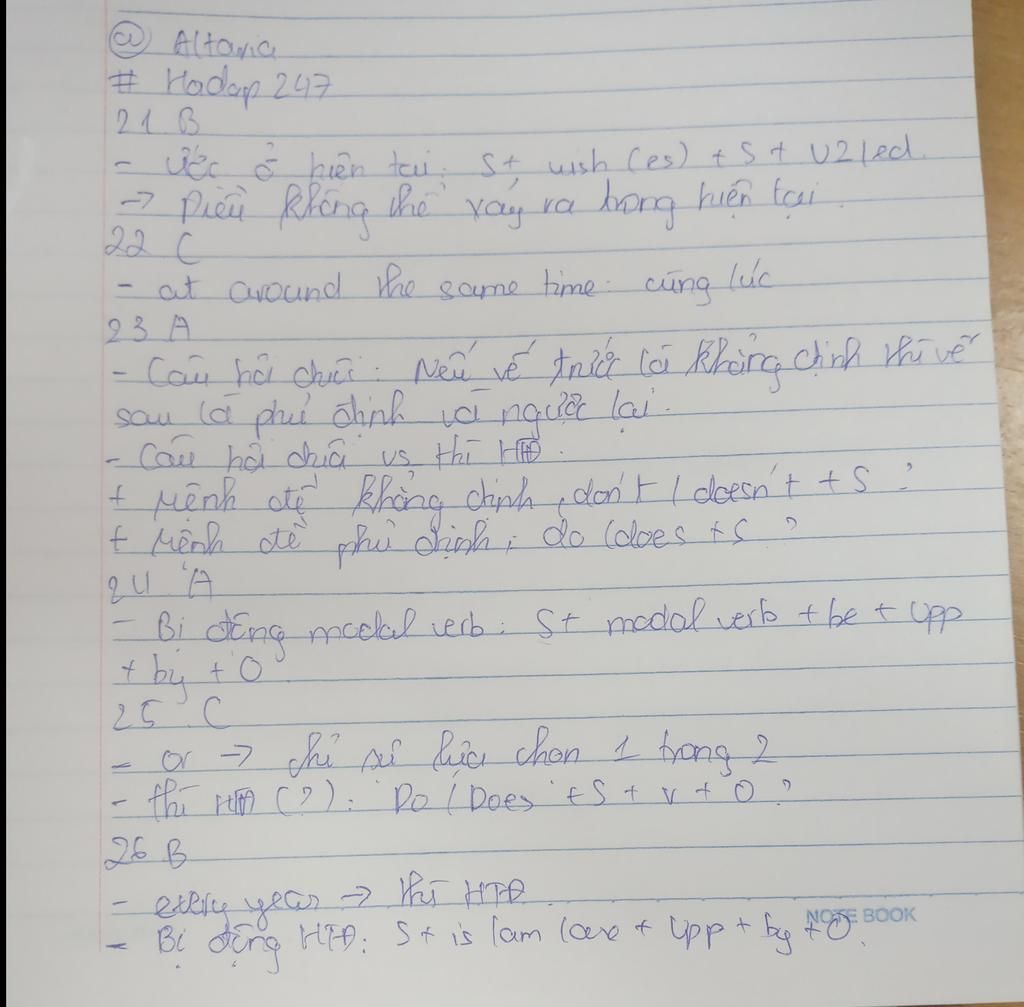 @ Altaria
# Hoidap247
21 B
- Ước ở hiện tại: S + wish (es) + S + V2/ed.
→ Điều không thể xảy ra trong hiện tại.
22 C
- at around the same time: cùng lúc
23 A
- Câu hỏi đuôi: Nếu vế trước là khẳng định thì vế
sau là phủ định và ngược lại.
- Câu hỏi đuôi vs thì HTĐ.
+ Mệnh đề khẳng định, don't / doesn't + S ?
+ Mệnh đề phủ định, do / does + S ?
24 A
- Bị động modal verb: S + modal verb + be + Vpp
+ by + O
25 C
- or → chỉ sự lựa chọn 1 trong 2
- thì HTĐ (?): Do / Does + S + V + O ?
26 B
- every year → thì HTĐ
- Bị động HTĐ: S + is / am / are + Vpp + by + O.
NOTE BOOK